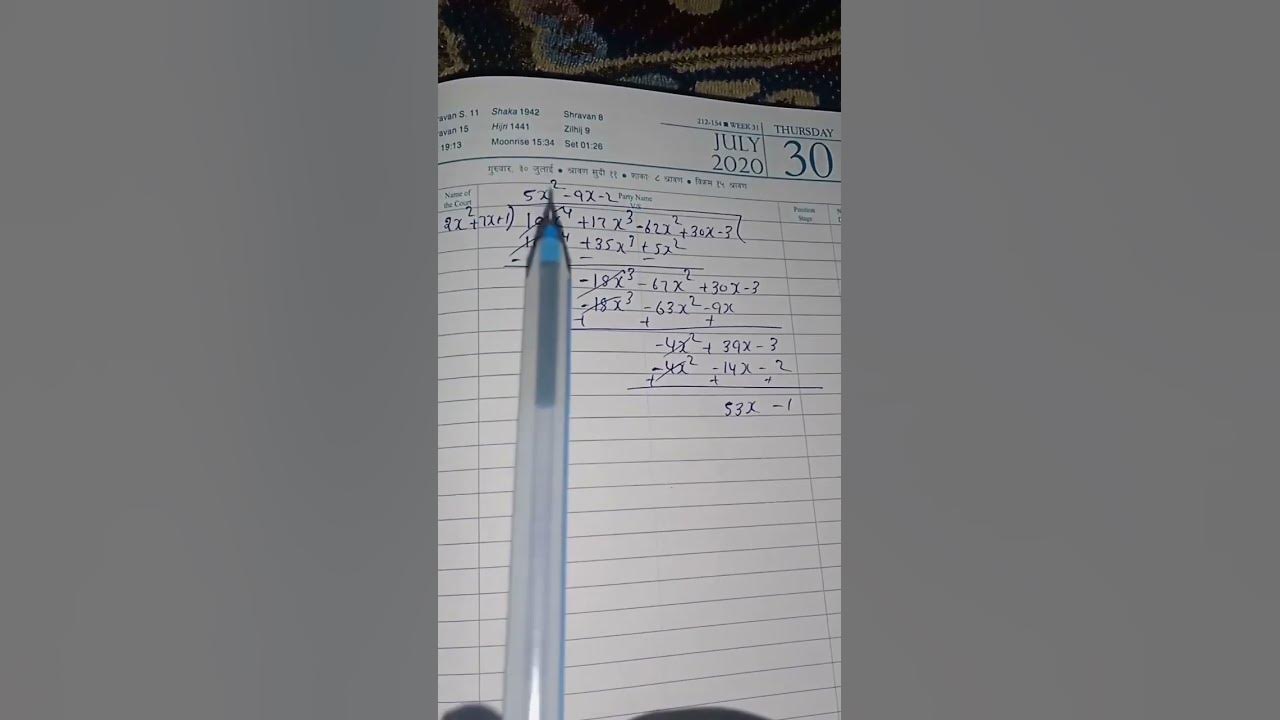 avan S. 11 Shaka 1942 Shravan 8
avan 15 Hijri 1441 Zilhij 9
19:13 Moonrise 15:34 Set 01:26
212-154 ■ WEEK 31 THURSDAY
JULY 2020 30
गुरुवार, ३० जुलाई • श्रावण सुदी ११ • शाका: ८ श्रावण • विक्रम १५ श्रावण
Name of the Court Party Name V/S Position Stage
5x² - 9x - 2
2x² + 7x + 1) x⁴ + 17x³ - 62x² + 30x - 3(
+ 35x³ + 5x²
- - -
- 18x³ - 67x² + 30x - 3
- 18x³ - 63x² - 9x
+ + +
- 4x² + 39x - 3
- 4x² - 14x - 2
+ + +
53x - 1